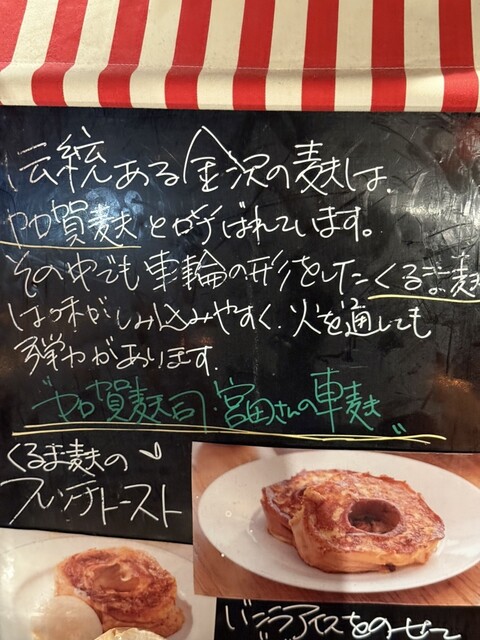 伝統ある金沢の麩は、
加賀麩と呼ばれています。
その中でも車輪の形をしたくるま麩
は味がしみ込みやすく、火を通しても
弾力があります。
"加賀麩司・宮田さんの車麩"
くるま麩の
フレンチトースト
バニラアイスをのせて